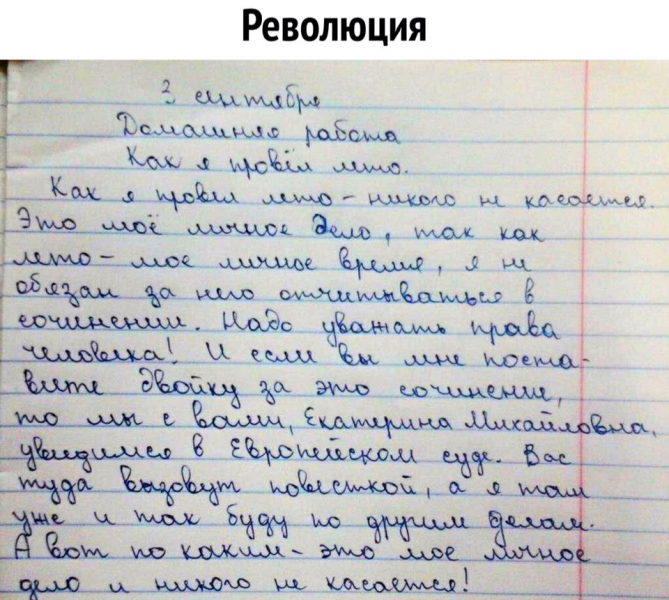 Революция
3 сентября
Домашняя работа
Как я провёл лето.
Как я провел лето – никого не касается.
Это моё личное дело, так как
лето – мое личное время, я не
обязан за него отчитываться в
сочинении. Надо уважать права
человека! И если Вы мне поста-
вите двойку за это сочинение,
то мы с вами, Екатерина Михайловна,
увидимся в Европейском суде. Вас
туда вызовут повесткой, а я там
уже и так буду по другим делам.
А вот по каким – это мое личное
дело и никого не касается!